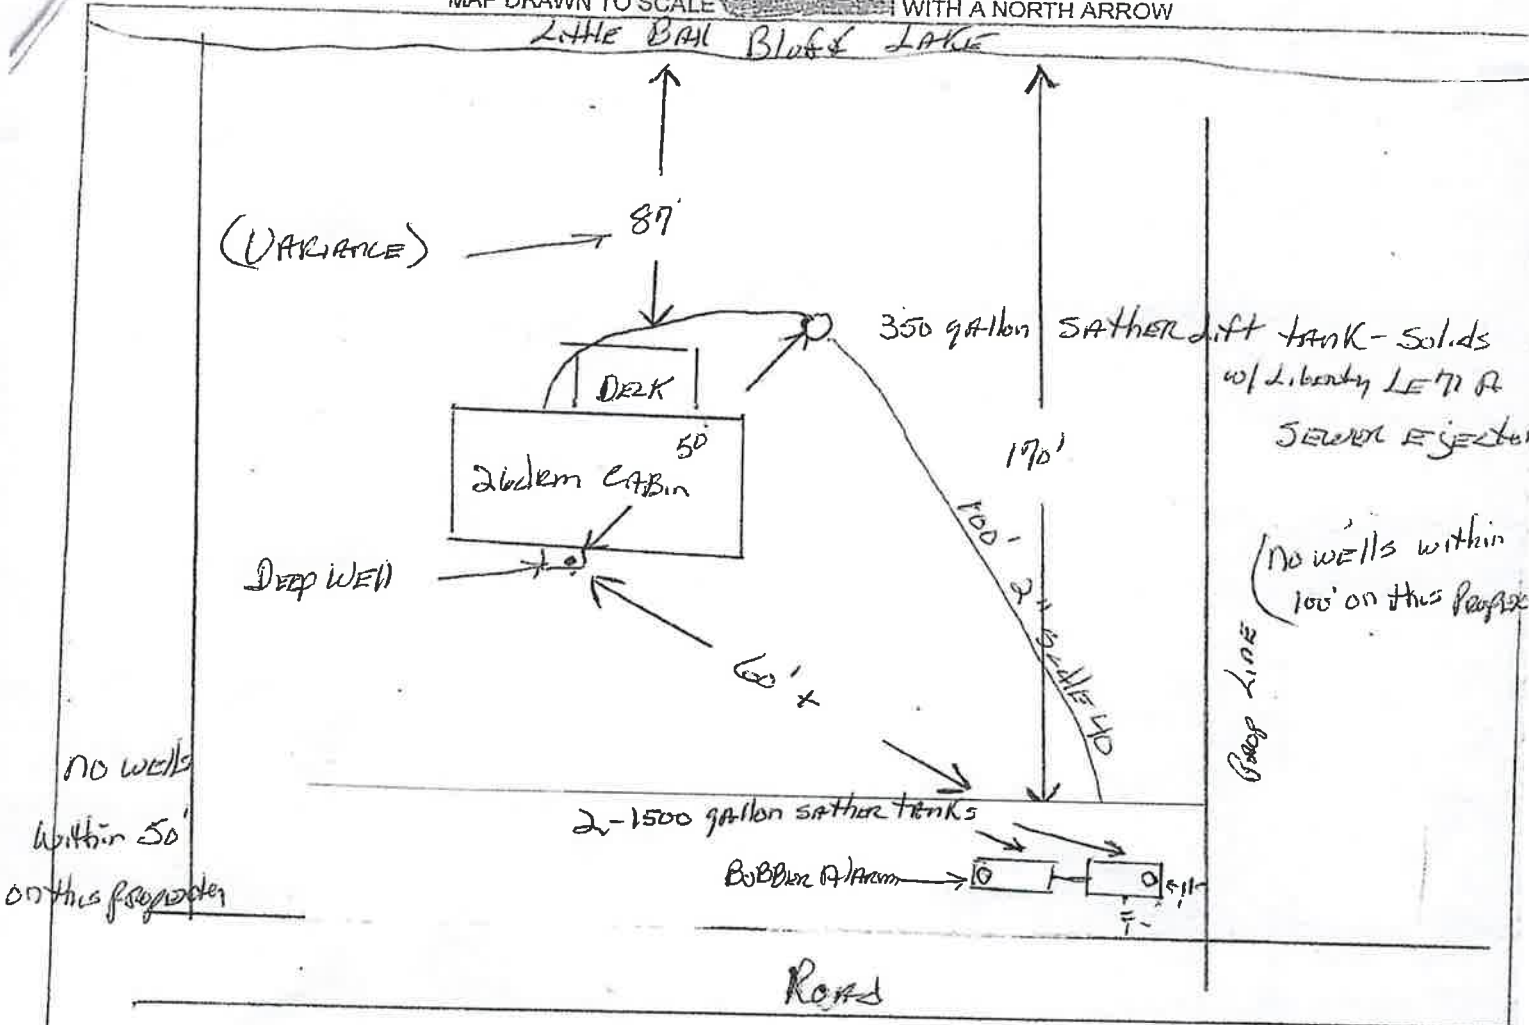 MAP DRAWN TO SCALE WITH A NORTH ARROW
Little Ball Bluff Lake
(Variance)
87'
350 gallon Sather Lift tank - Solids
w/ Liberty LE71A
Sewer Ejector
Deck
50'
2 bdrm Cabin
170'
100' 2" Sch 40
Deep Well
(no wells within
100' on this
Prop Line
60'
no wells
within 50'
on this property
2-1500 gallon sather tanks
Bubbler Alarm
Road